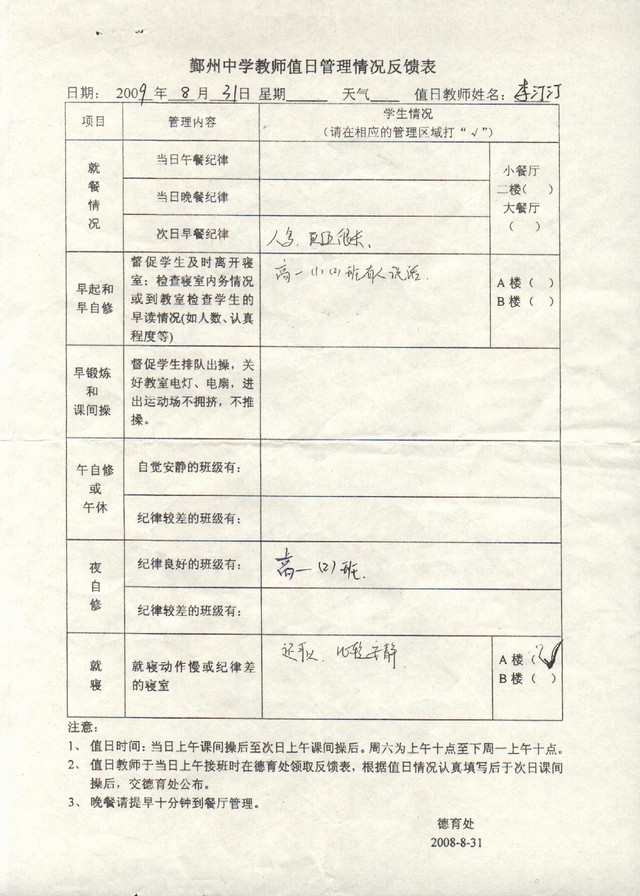 鄞州中学教师值日管理情况反馈表
日期： 2009 年 8 月 31 日 星期 天气 值日教师姓名：李汀汀
项目
管理内容
学生情况
（请在相应的管理区域打“√”）
就
餐
情
况
当日午餐纪律
当日晚餐纪律
次日早餐纪律
人多,
很长.
小餐厅
二楼（ ）
大餐厅
（ ）
早起和
早自修
督促学生及时离开寝
室；检查寝室内务情况
或到教室检查学生的
早读情况(如人数、认真
程度等)
高一 (1) (2) 班有人说话.
A 楼（ ）
B 楼（ ）
早锻炼
和
课间操
督促学生排队出操，关
好教室电灯、电扇，进
出运动场不拥挤，不推
搡。
午自修
或
午休
自觉安静的班级有：
纪律较差的班级有：
夜
自
修
纪律良好的班级有：
高一 (2) 班.
纪律较差的班级有：
就
寝
就寝动作慢或纪律差
的寝室
还可以. 比较安静
A 楼（√）
B 楼（ ）
注意：
1、 值日时间：当日上午课间操后至次日上午课间操后。周六为上午十点至下周一上午十点。
2、 值日教师于当日上午接班时在德育处领取反馈表，根据值日情况认真填写后于次日课间
操后，交德育处公布。
3、 晚餐请提早十分钟到餐厅管理。
德育处
2008-8-31